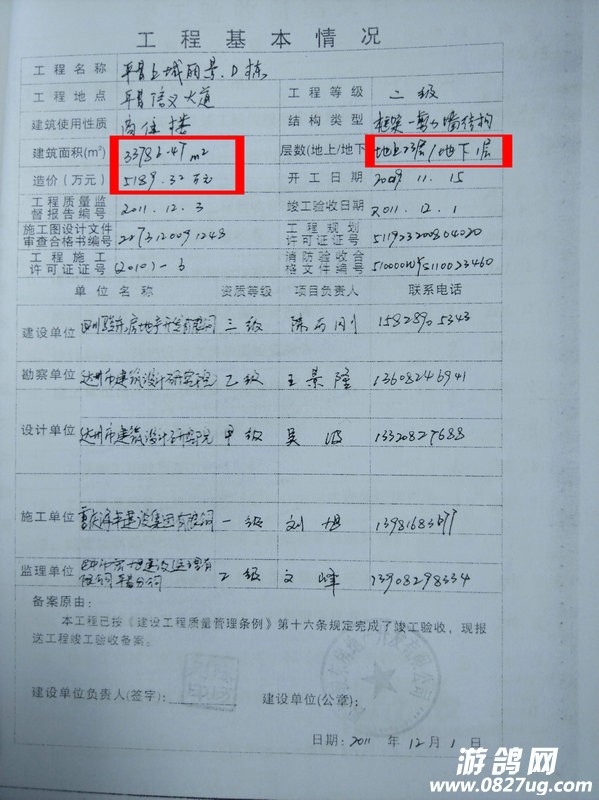 工程基本情况
工程名称 平昌上城丽景.D栋
工程地点 平昌信义大道 工程等级 二级
建筑使用性质 商住楼 结构类型 框架—剪力墙结构
建筑面积(m²) 33786.47m² 层数(地上/地下 地上23层/地下1层
造价(万元) 5189.32万元 开工日期 2009.11.15
工程质量监督报告编号 2011.12.3 竣工验收日期 2011.12.1
施工图设计文件审查合格书编号 2073120091248 工程规划许可证证号 511923200804020
工程施工许可证证号 (2010)-3 消防验收合格文件编号
单位名称 资质等级 项目负责人 联系电话
建设单位 房地产开发有限公司 三级 陈 刚 15828905343
勘察单位 达州市建筑设计研究院 乙级 王景隆 13608246941
设计单位 达州市建筑设计研究院 甲级 吴 13320827688
施工单位 建设集团有限公司 一级 刘旭 13981683677
监理单位 建设监理有限公司平昌分公司 乙级 文峰 13908298334
备案原由:
本工程已按《建设工程质量管理条例》第十六条规定完成了竣工验收,现报
送工程竣工验收备案。
建设单位负责人(签字): 建设单位(公章):
日期:2011年12月1日
游鸽网
www.0827ug.com